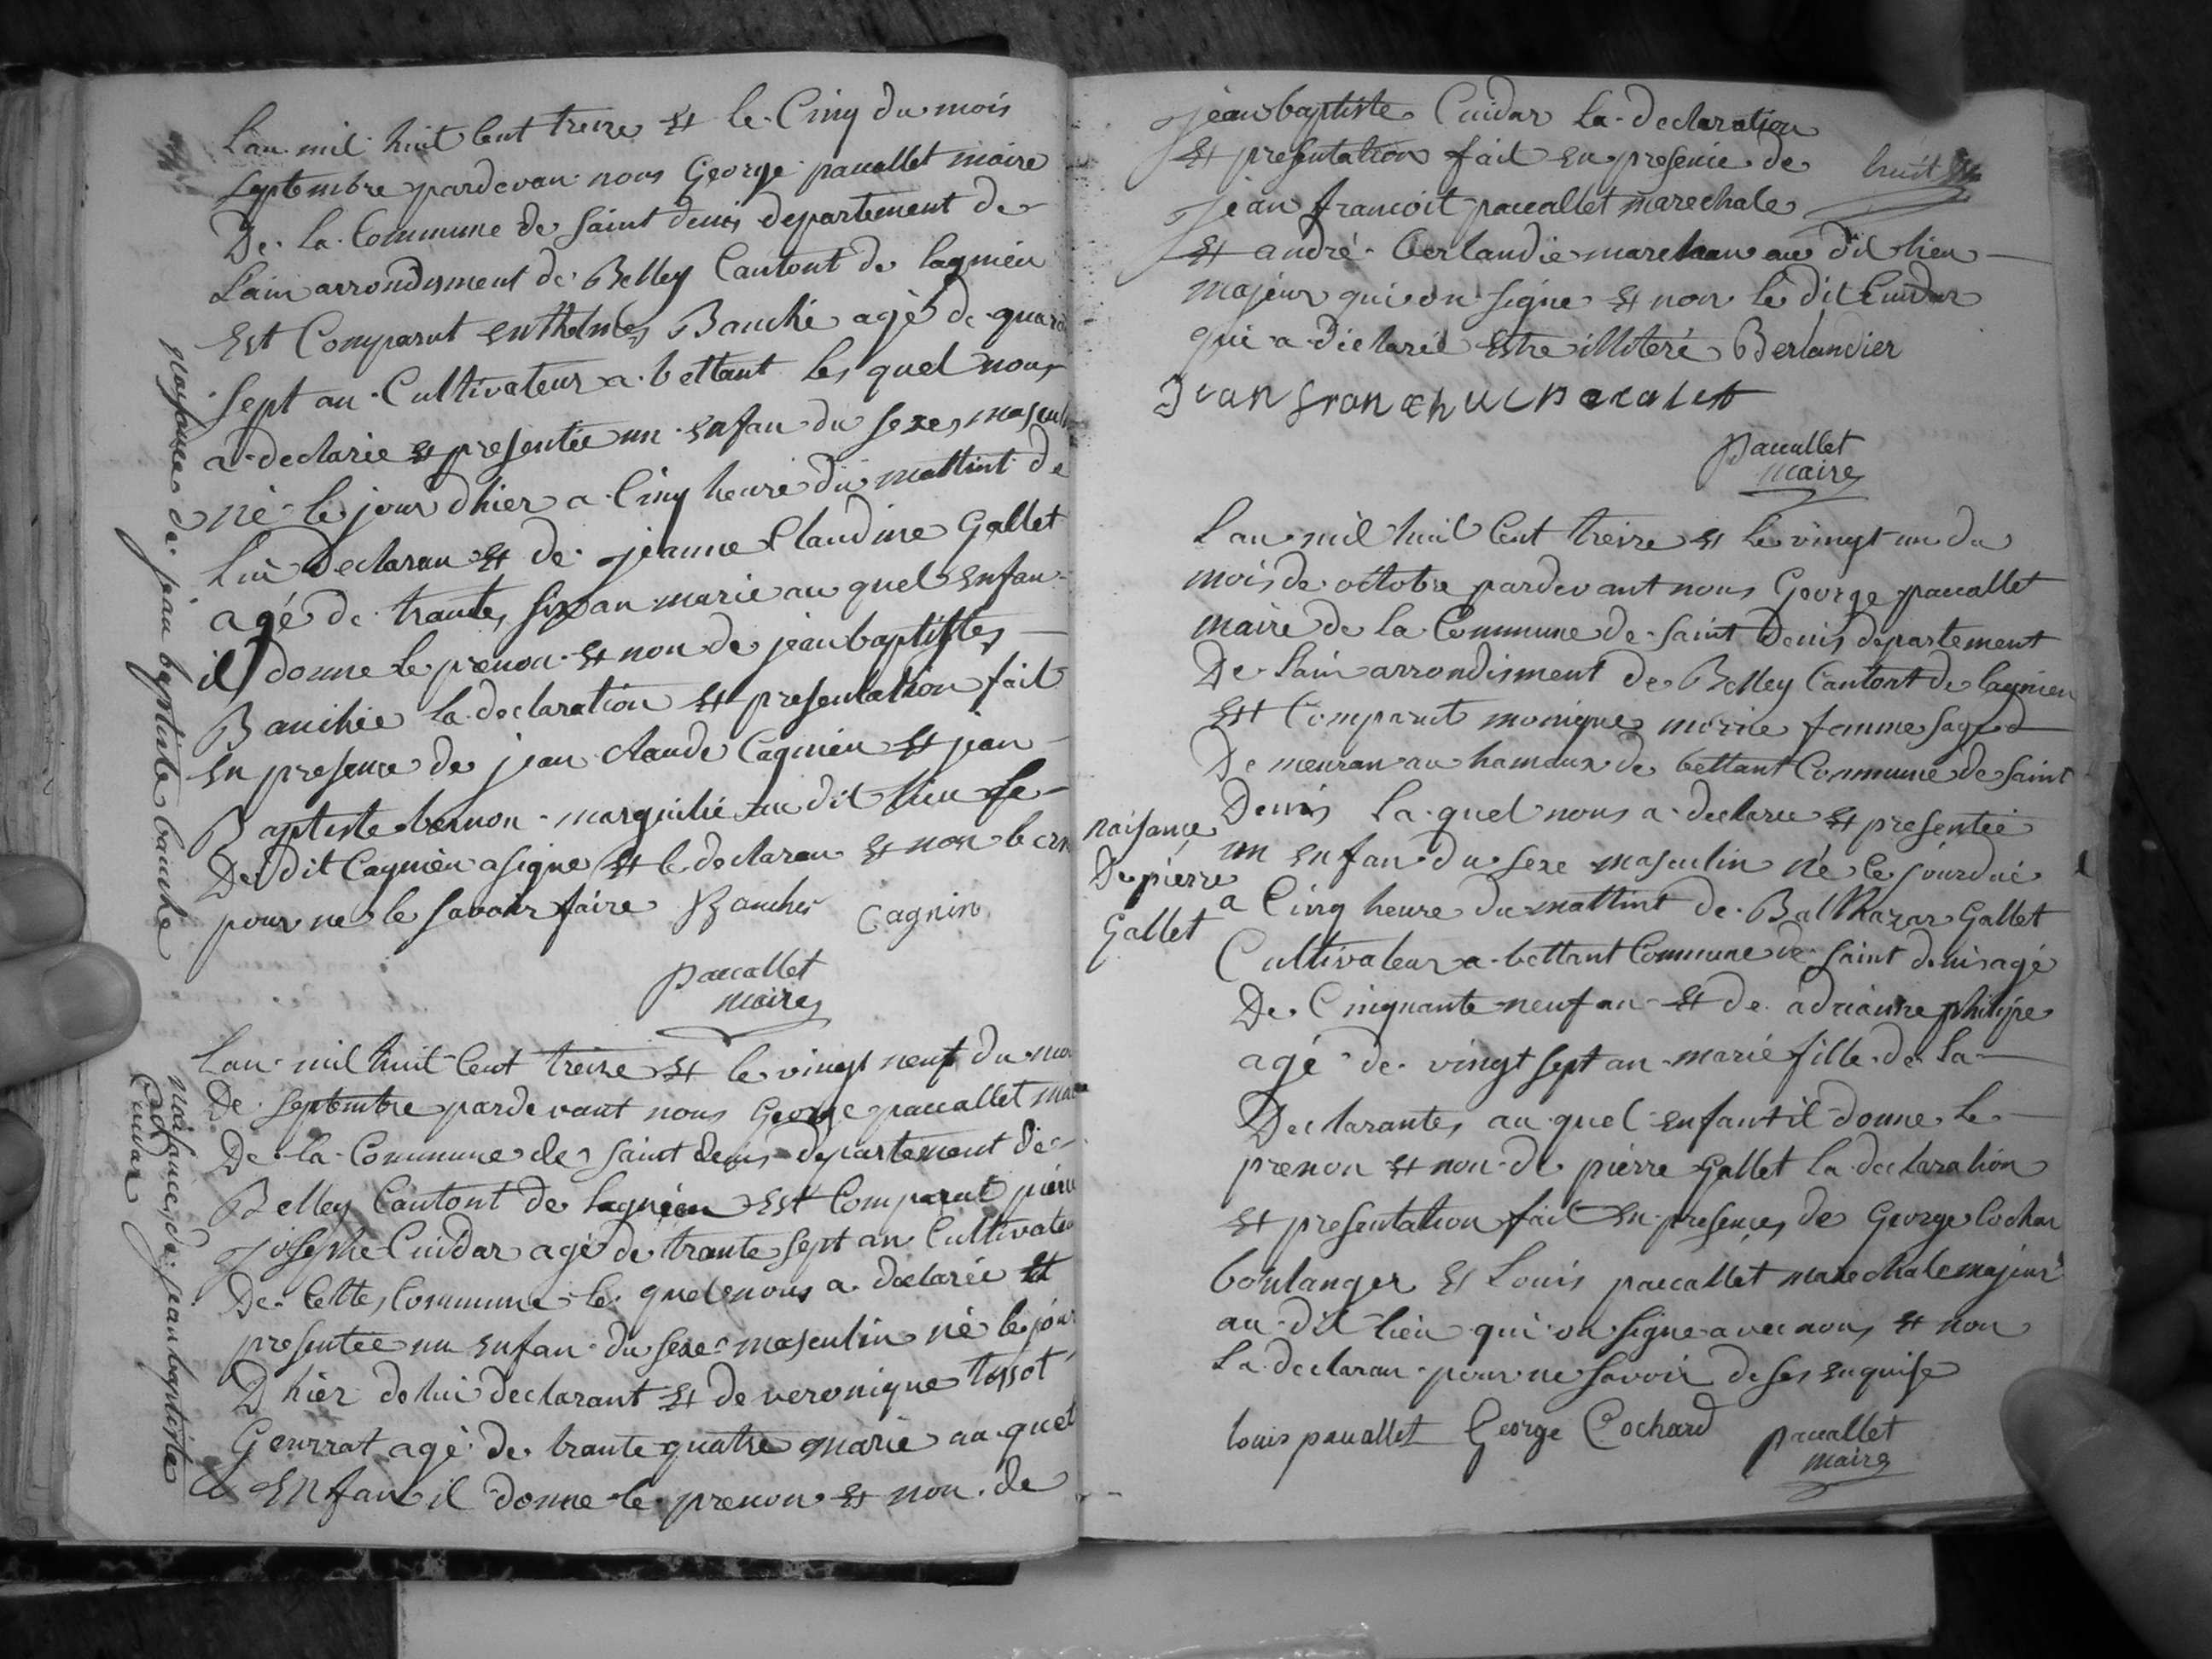 naisance de jean baptiste bauche
L'an mil huit Cent treize et le Cinq du mois
septembre pardevan nous George paucallet maire
De la Commune de saint denis departement de
Lain arrondisment de Belley Cantont de lagnieu
Est Comparut enthelmes Bauche agé de quara
sept an Cultivateur a bettant les quel nous
a declarie et presentée un enfan du sexe mascul
né le jour dhier a Cinq heure du mattint de
Lui Declaran et de jeanne Claudine Gallet
agé de trante six an marie au quel enfan
il donne le prenon et non de jean baptistes
Bauchée la declaration et presentation fait
en presence de jean claude Cagnien et jean
Baptiste bernon marguilié au dit lieu Le
De dit Cagnien a signe et le declaran et non bern
pour ne le savoir faire Baucher Cagnin
paucallet
maire
naisance de jean baptiste
Cuidar
Lan mil huit Cent treize et le vingt neuf du moi
De septembre pardevant nous George paucallet mai
De la Commune de saint denis departement de
Belley Cantont de Lagnieu Est Comparut pierre
josephe Cuidar agé de trante sept an Cultivateu
De Cette Commune le quel nous a declarée et
presentée un enfan du sexe masculin né le jour
D hier de lui declarant et de veronique tossot
Gourrat agé de trante quatre marie au quel
Enfan il donne le prenon et non de
jean baptiste Cuidar la declaration
et presentation fait en presence de
huit
jean francoit paucallet marechale
et andré berlandie marchan au dit lieu
majeur qui on signe et non le dit Cuidar
qui a diclarié estre illiteré Berlandier
paucallet
maire
Lan mil huit Cent treize et le vingt un du
mois de octobre pardevant nous George paucallet
maire de la Commune de saint Denis departement
De Lain arrondisment de Belley Cantont de lagnieu
Est Comparut monique morie famme sage d
De meuran au hamaux de bettant Commune de saint
Denis la quel nous a declaree et presentée
naisance
De pierre
Gallet
un enfan du sexe masculin né le jourdui
a Cinq heure du mattint de Balthazar Gallet
Cultivateur a bettant Commune de saint denis agé
De Cinquante neuf an et de adrianne philipe
agé de vingt sept an marié fille de la
Declarantes au quel enfant il donne le
prenon et non de pierre Gallet la declaration
et presentation fait en presences de George Cochar
boulanger et Louis paucallet marechale majeur
au dit lieu qui on signe avec nous et non
la declaran pour ne savoir de ses enquise
louis paucallet George Cochard paucallet
maire